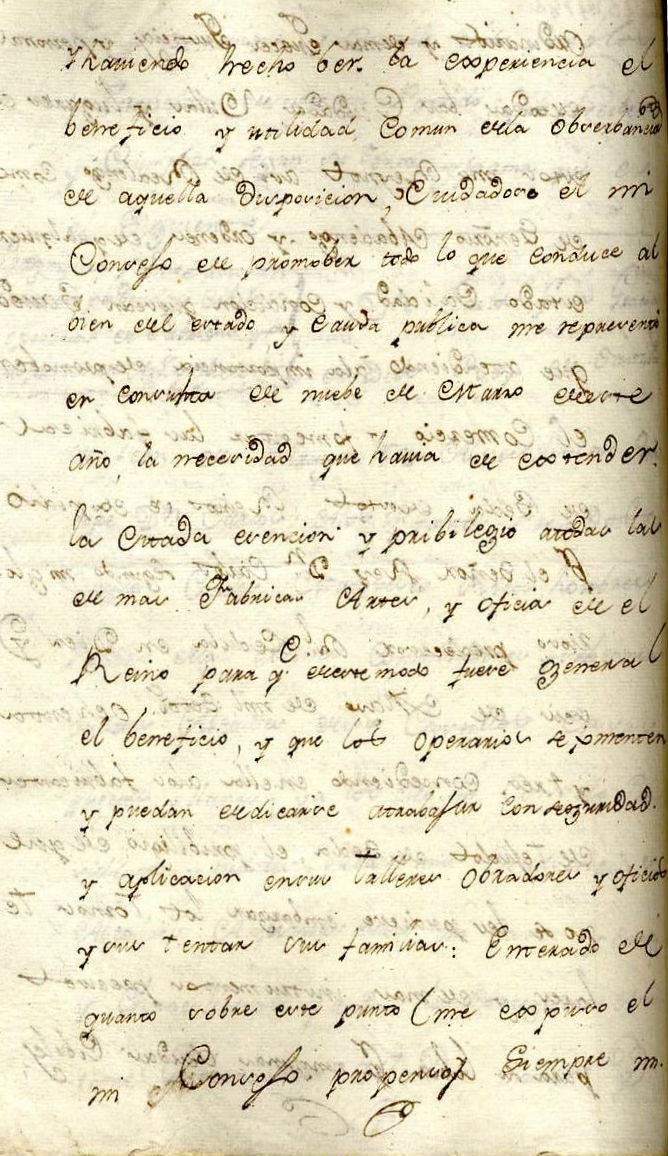 y haviendo hecho ber la experiencia el
beneficio y utilidad Comun de la Obserbancia
de aquella Disposicion, Cuidadoso el mi
Consejo de promober todo lo que Conduce al
bien del estado y Causa publica me represento
en Consulta de nuebe de Marzo de este
año, la necesidad que havia de extender
la Citada esencion y pribilegio atodas las
demas Fabricas Artes, y oficios de el
Reino para q.e de este modo fuese General
el beneficio, y que los Operarios se
y puedan dedicarse atrabajar Con seguridad
y aplicacion en sus talleres Obradores y oficios
y sus familias: Enterado de
quanto sobre este punto me expuso el
mi Consejo, propenso Siempre